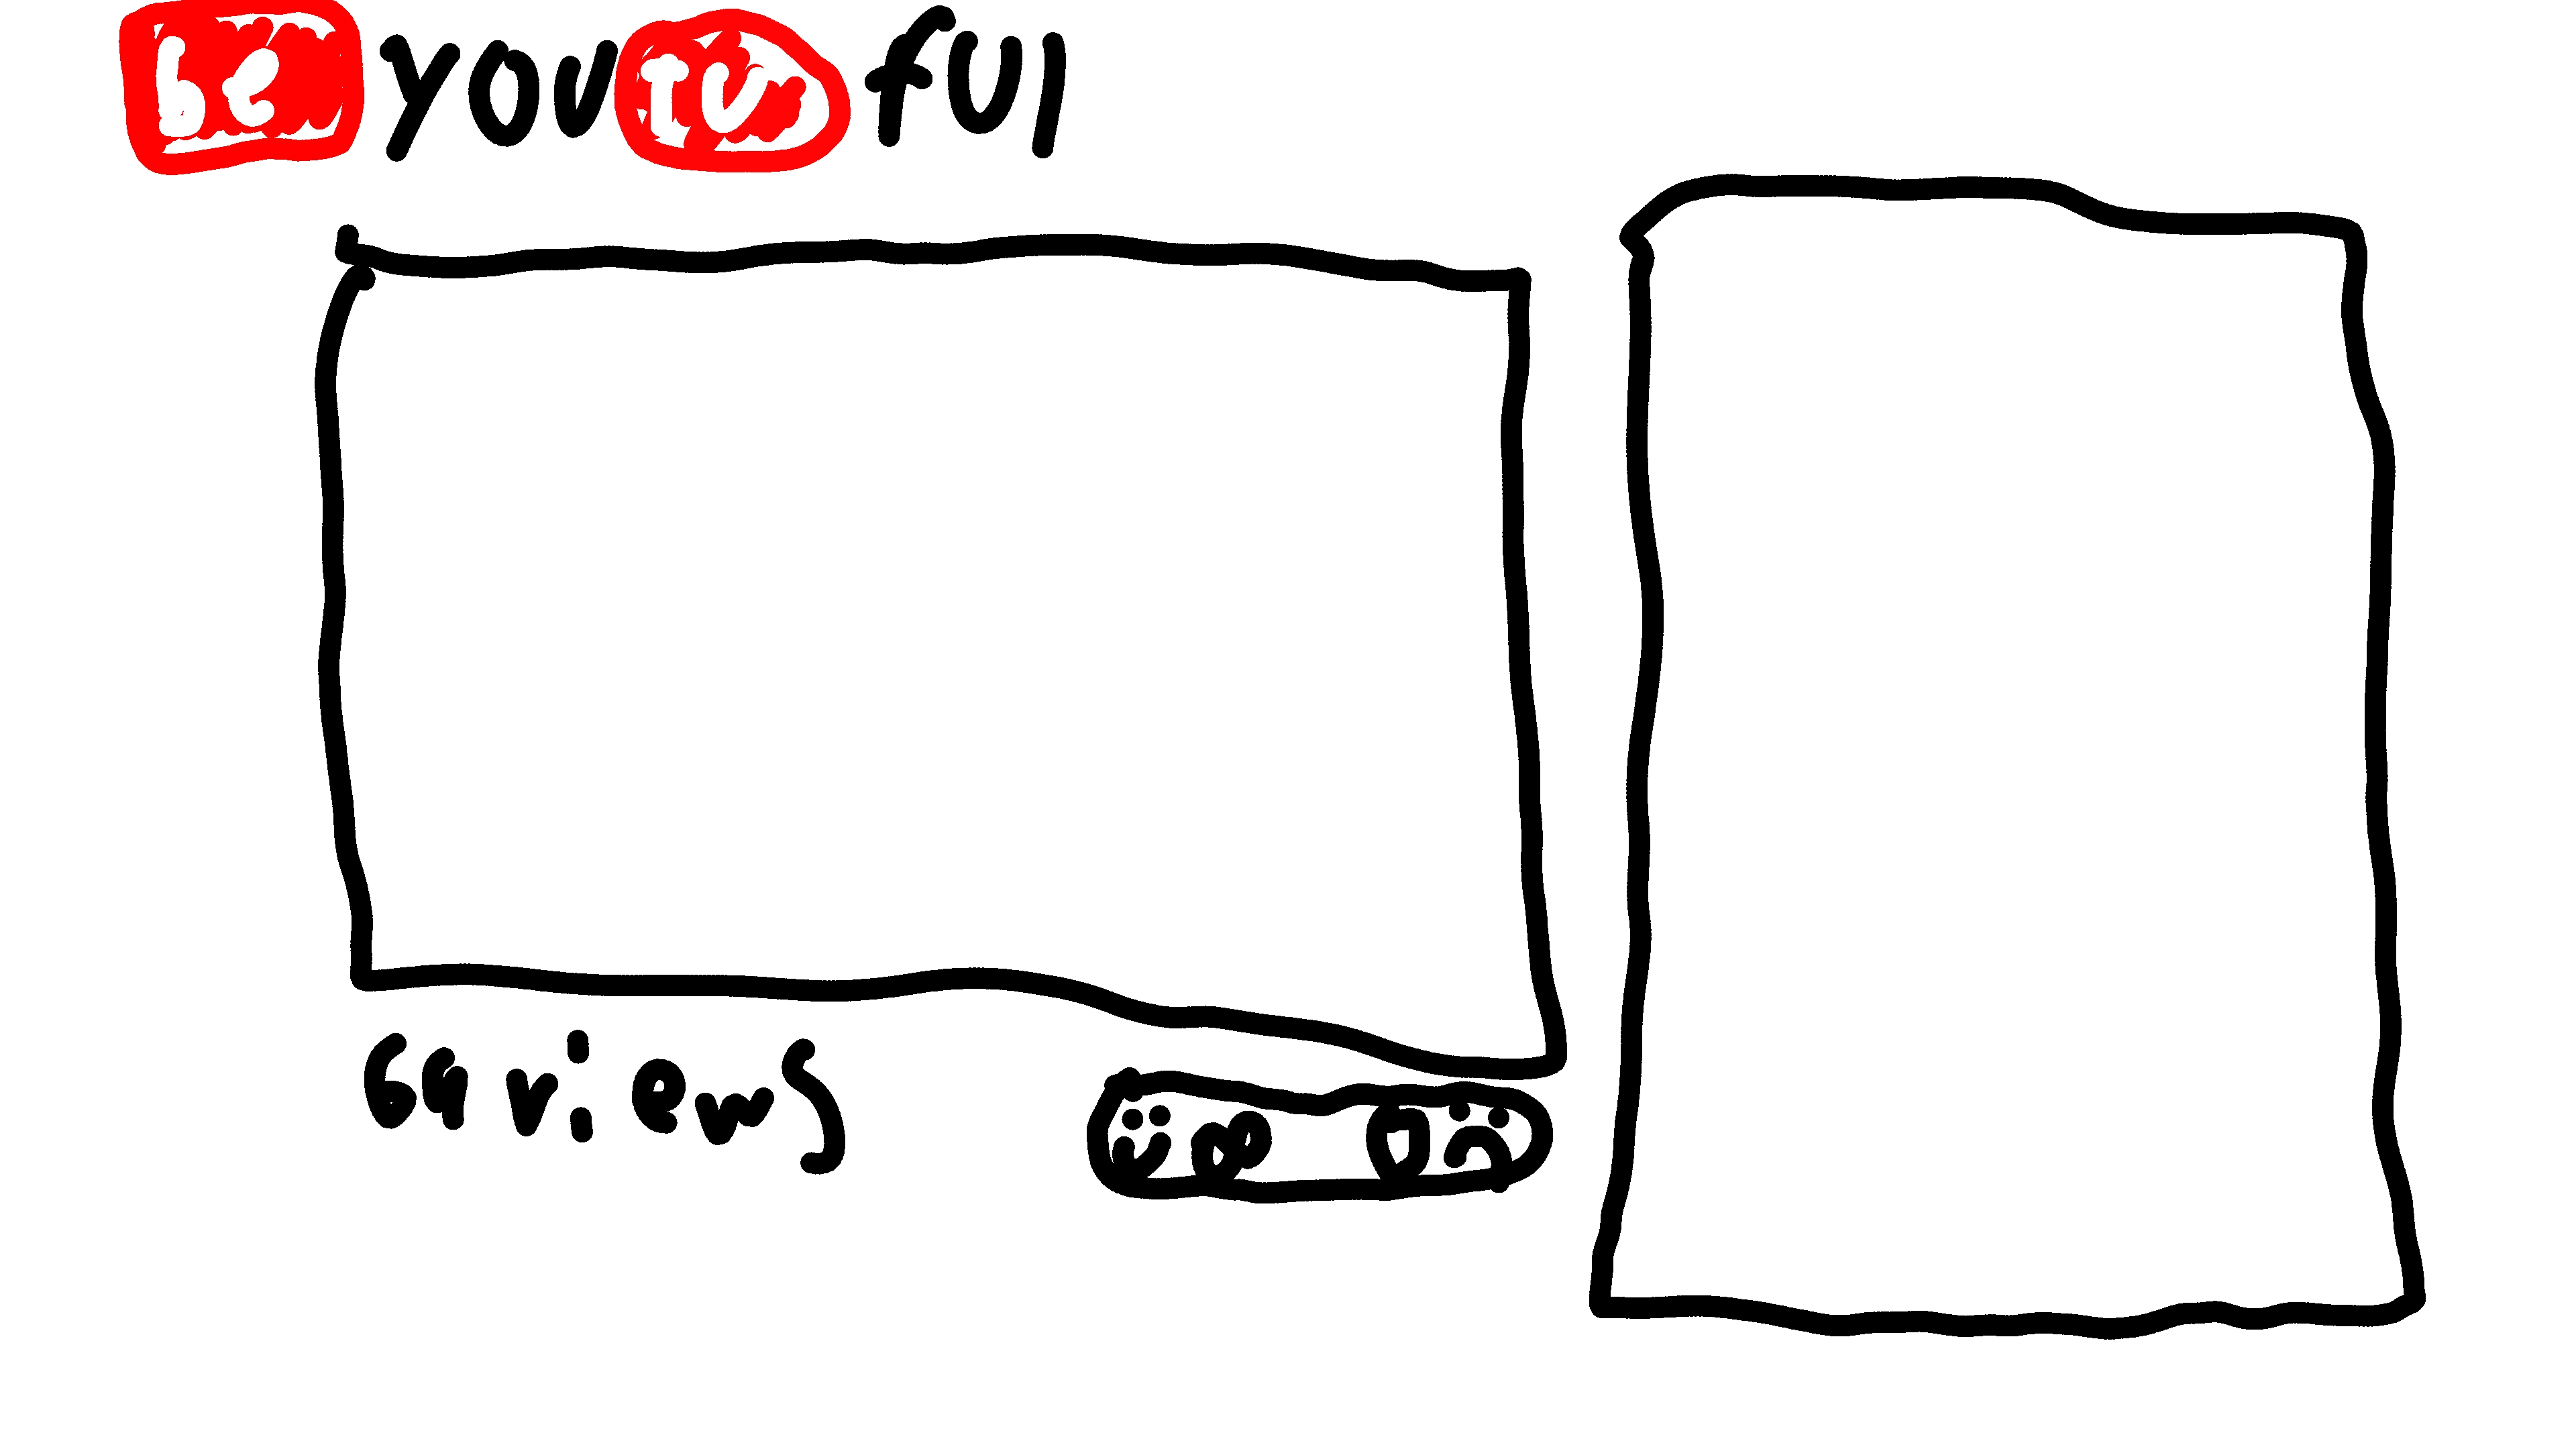 be you tu ful
69 views
0